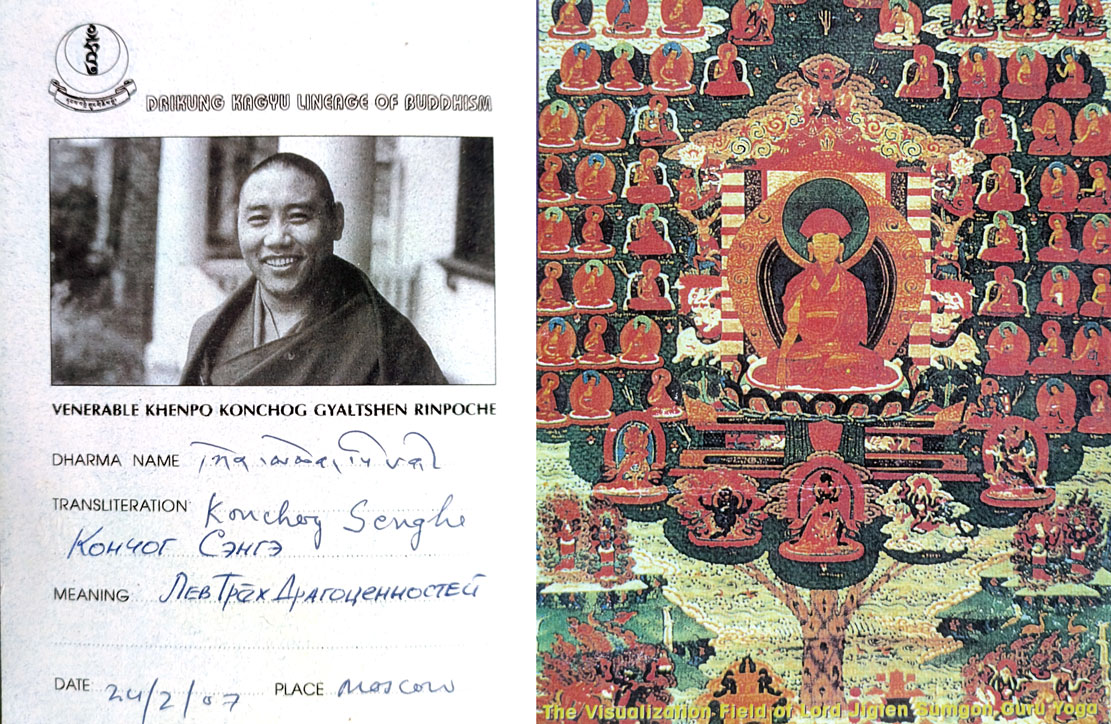 DRIKUNG KAGYU LINEAGE OF BUDDHISM
VENERABLE KHENPO KONCHOG GYALTSHEN RINPOCHE
DHARMA NAME
TRANSLITERATION Konchog Senghe
Кончог Сэнгэ
MEANING Лев Трёх Драгоценностей
DATE 24/2/07 PLACE Moscow
The Visualization Field of Lord Jigten Sumgon Guru Yoga